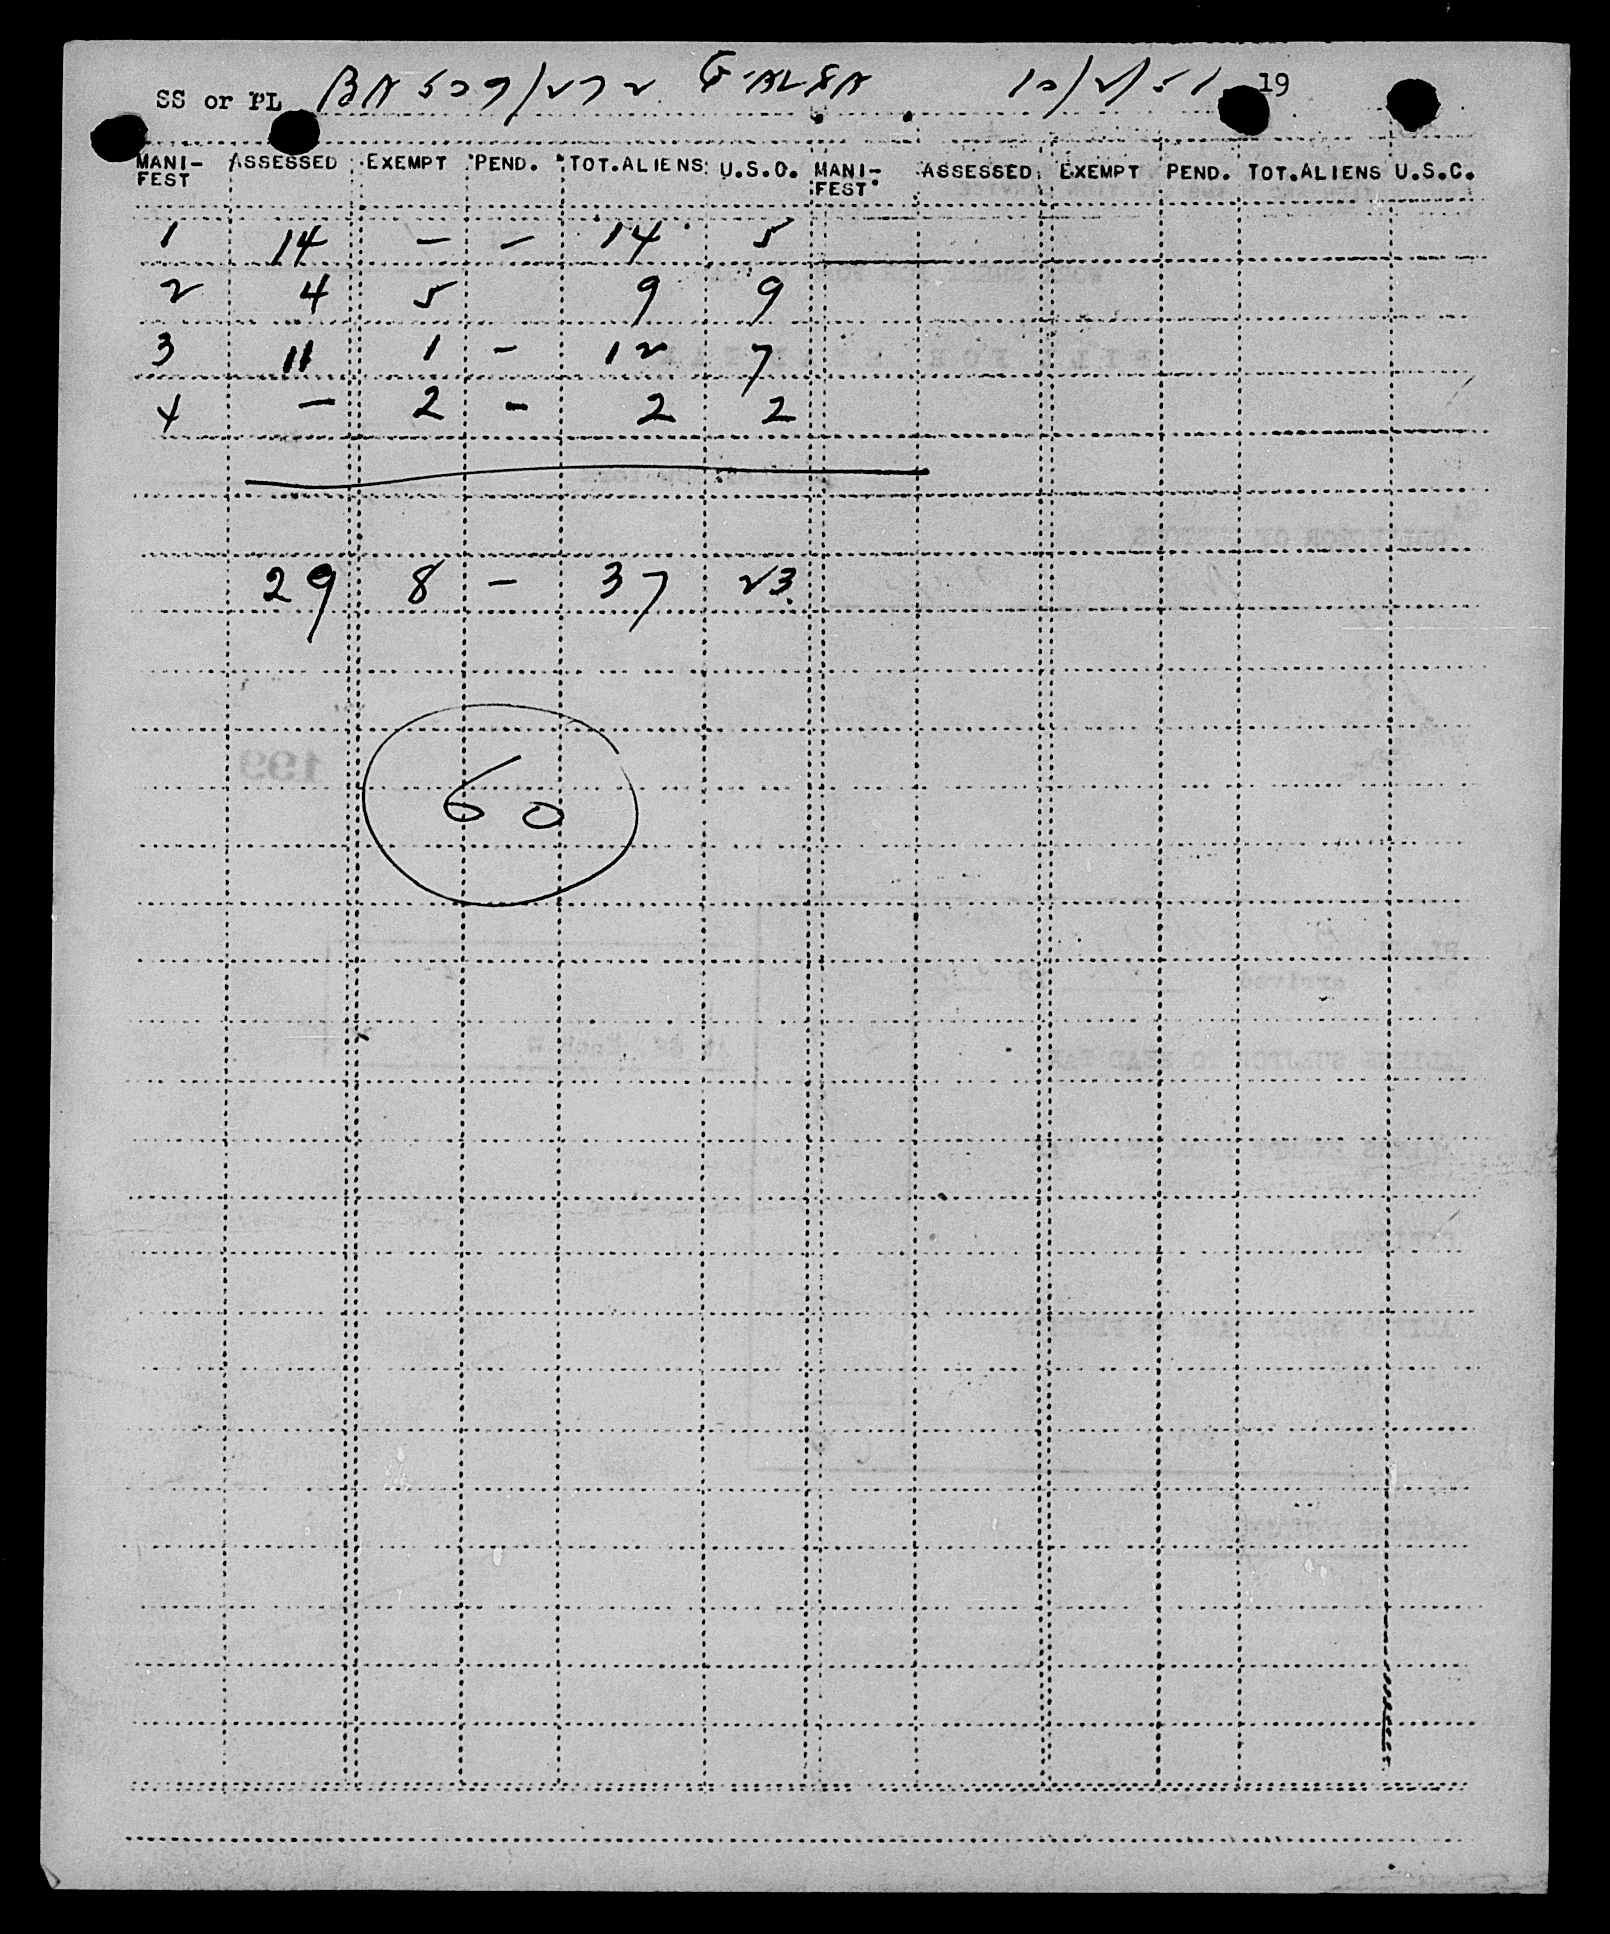 SS or PL BA 509/272 G-ALSA 10/2/51 19
MANI-FEST ASSESSED EXEMPT PEND. TOT.ALIENS U.S.C. MANI-FEST ASSESSED EXEMPT PEND. TOT.ALIENS U.S.C.
1 14 - - 14 5
2 4 5 9 9
3 11 1 - 12 7
4 - 2 - 2 2
29 8 - 37 23
60
199